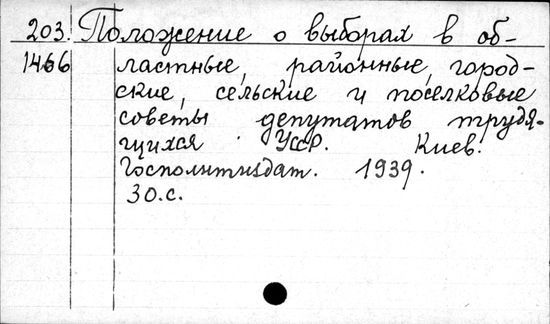 203. Положение о выборах в об-
1466 ластные, районные, город-
ские, сельские и поселковые
советы депутатов трудя-
щихся УССР. Киев.
Госполитиздат. 1939.
30.с.